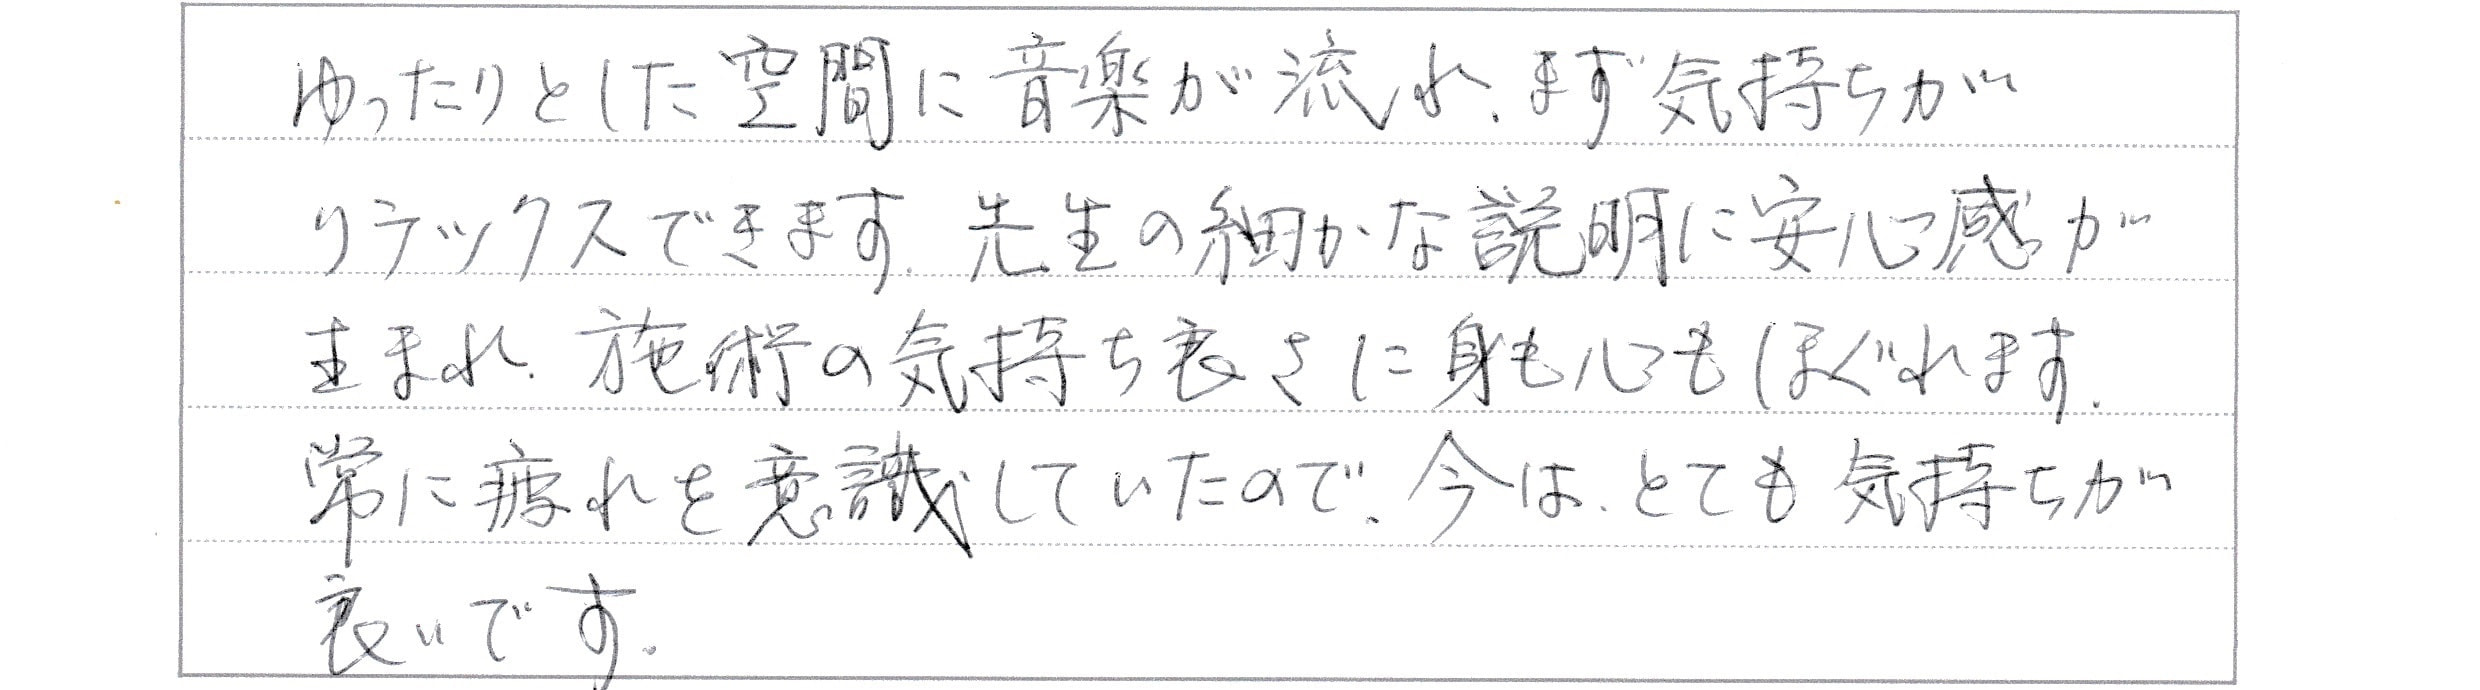 ゆったりとした空間に音楽が流れ、まず気持ちが
リラックスできます。先生の細かな説明に安心感が
生まれ、施術の気持ち良さに身も心もほぐれます。
常に疲れを意識していたので、今は、とても気持ちが
良いです。